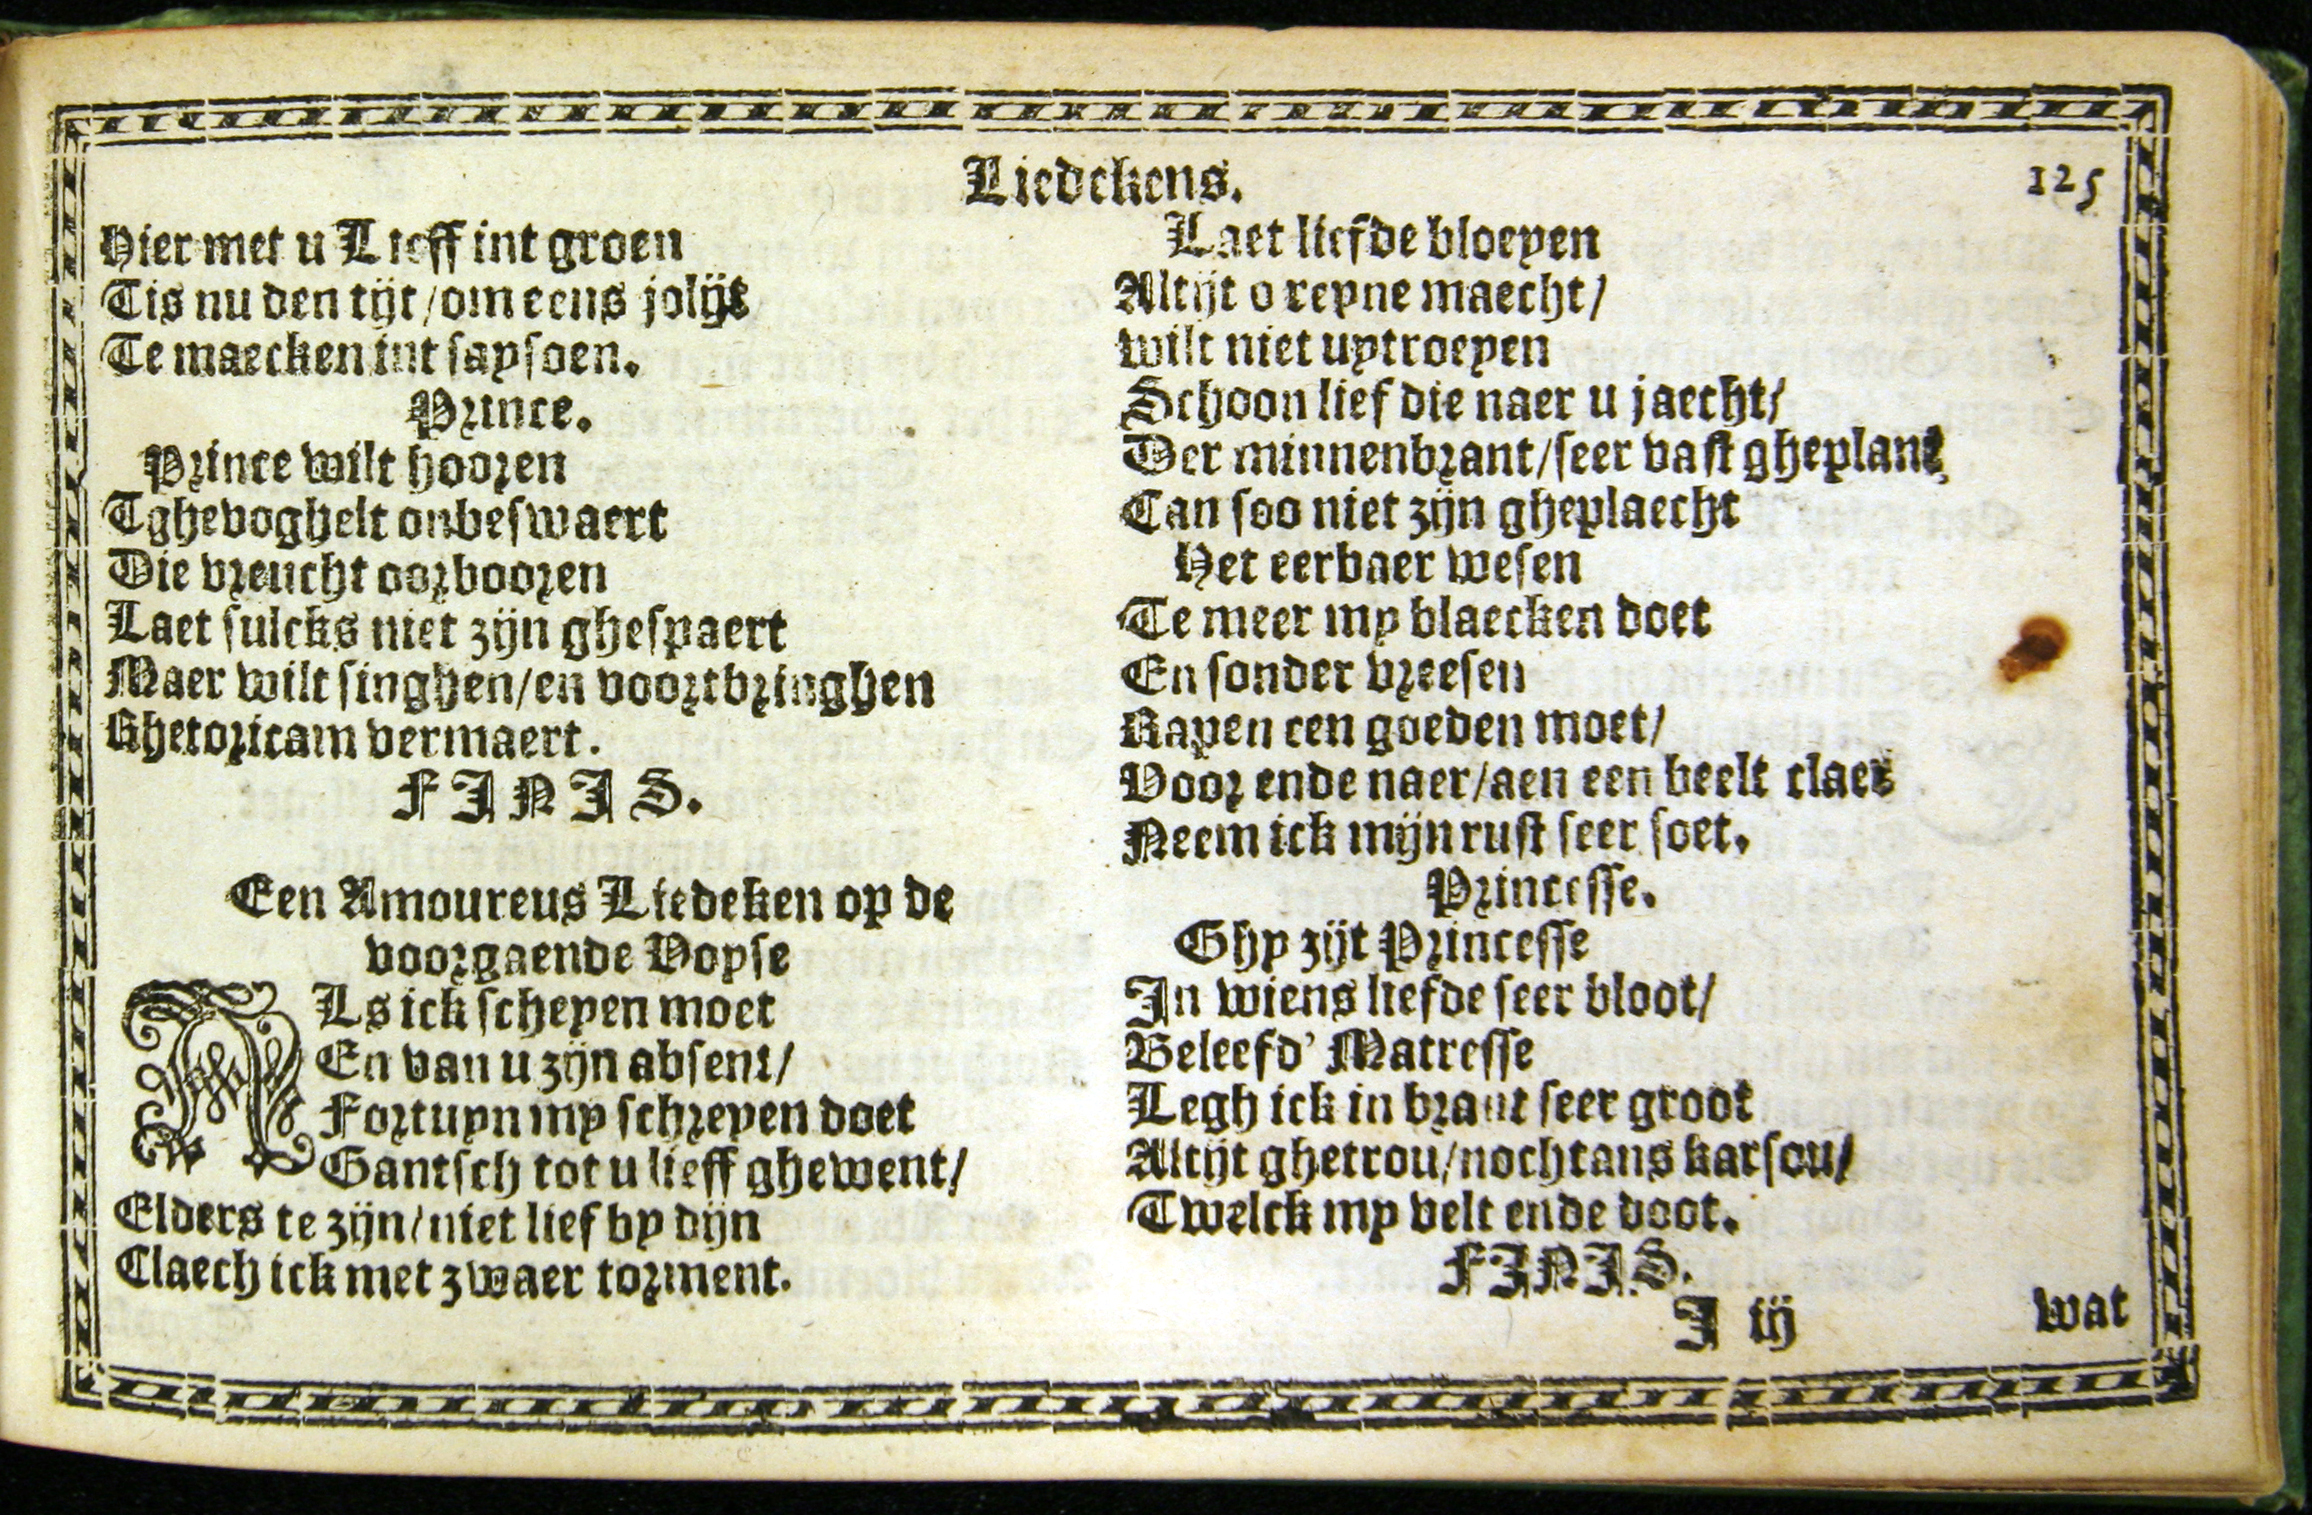 Liedekens.
125
Hier met u Lieff int groen
Tis nu den tijt/om eens jolijt
Te maecken int saysoen.
Prince.
Prince wilt hooren
Tghevoghelt onbeswaert
Die vreucht oorbooren
Laet sulcks niet zijn ghespaert
Maer wilt singhen/en voortbringhen
Rhetoricam vermaert.
FINIS.
Een Amoureus Liedeken op de
voorgaende Voyse
ALs ick scheyen moet
En van u zijn absent/
Fortuyn my schreyen doet
Gantsch tot u lieff ghewent/
Elders te zijn/niet lief by dijn
Claech ick met zwaer torment.
Laet liefde bloeyen
Altijt o reyne maecht/
wilt niet uytroeyen
Schoon lief die naer u jaecht/
Der minnenbrant/seer vast gheplant
Can soo niet zijn gheplaecht
Het eerbaer wesen
Te meer my blaecken doet
En sonder vreesen
Rapen een goeden moet/
Voor ende naer/aen een beelt claer
Neem ick mijn rust seer soet.
Princesse.
Ghy zijt Princesse
In wiens liefde seer bloot/
Beleefd' Matresse
Legh ick in brant seer groot
Altijt ghetrou/nochtans karsou/
Twelck my velt ende doot.
FINIS.
I iij
wat